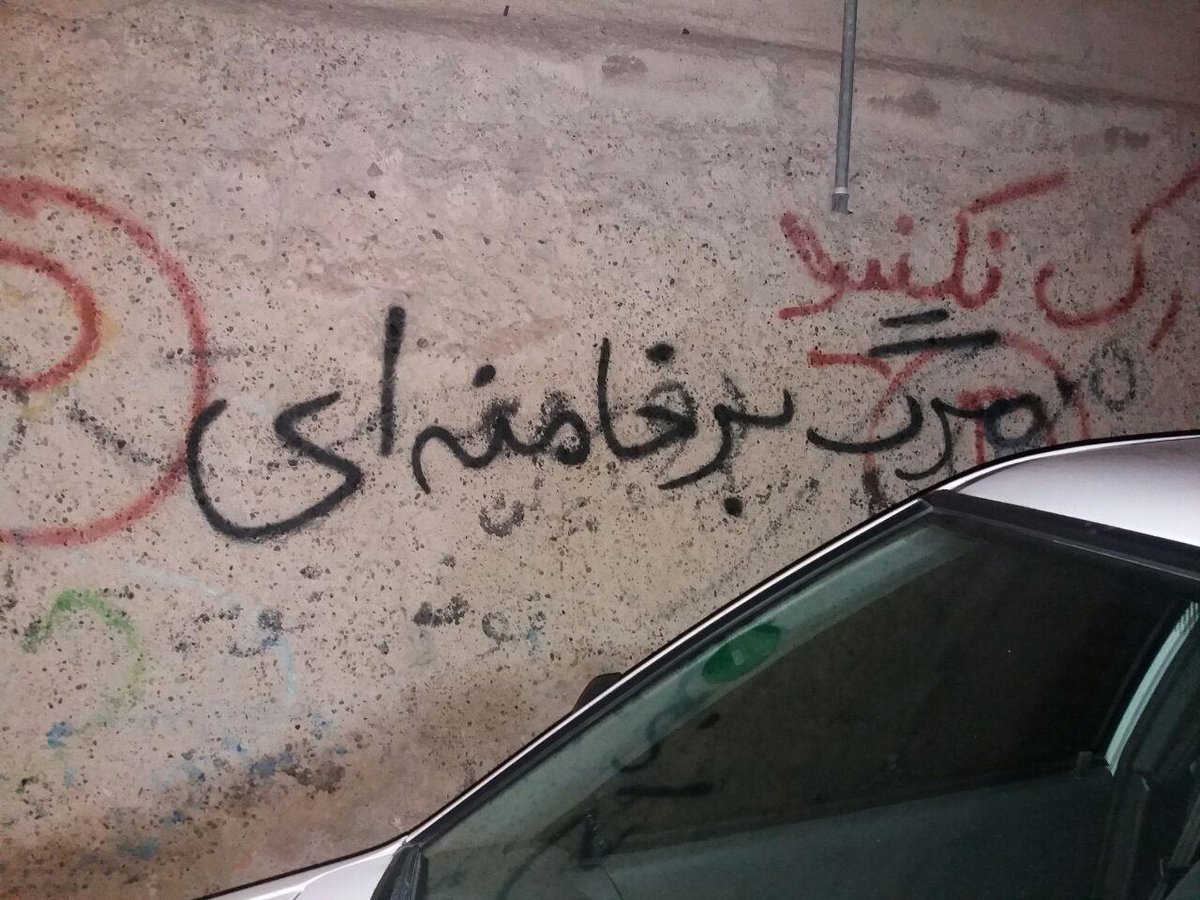 پارک نکنید
مرگ بر خامنه ای